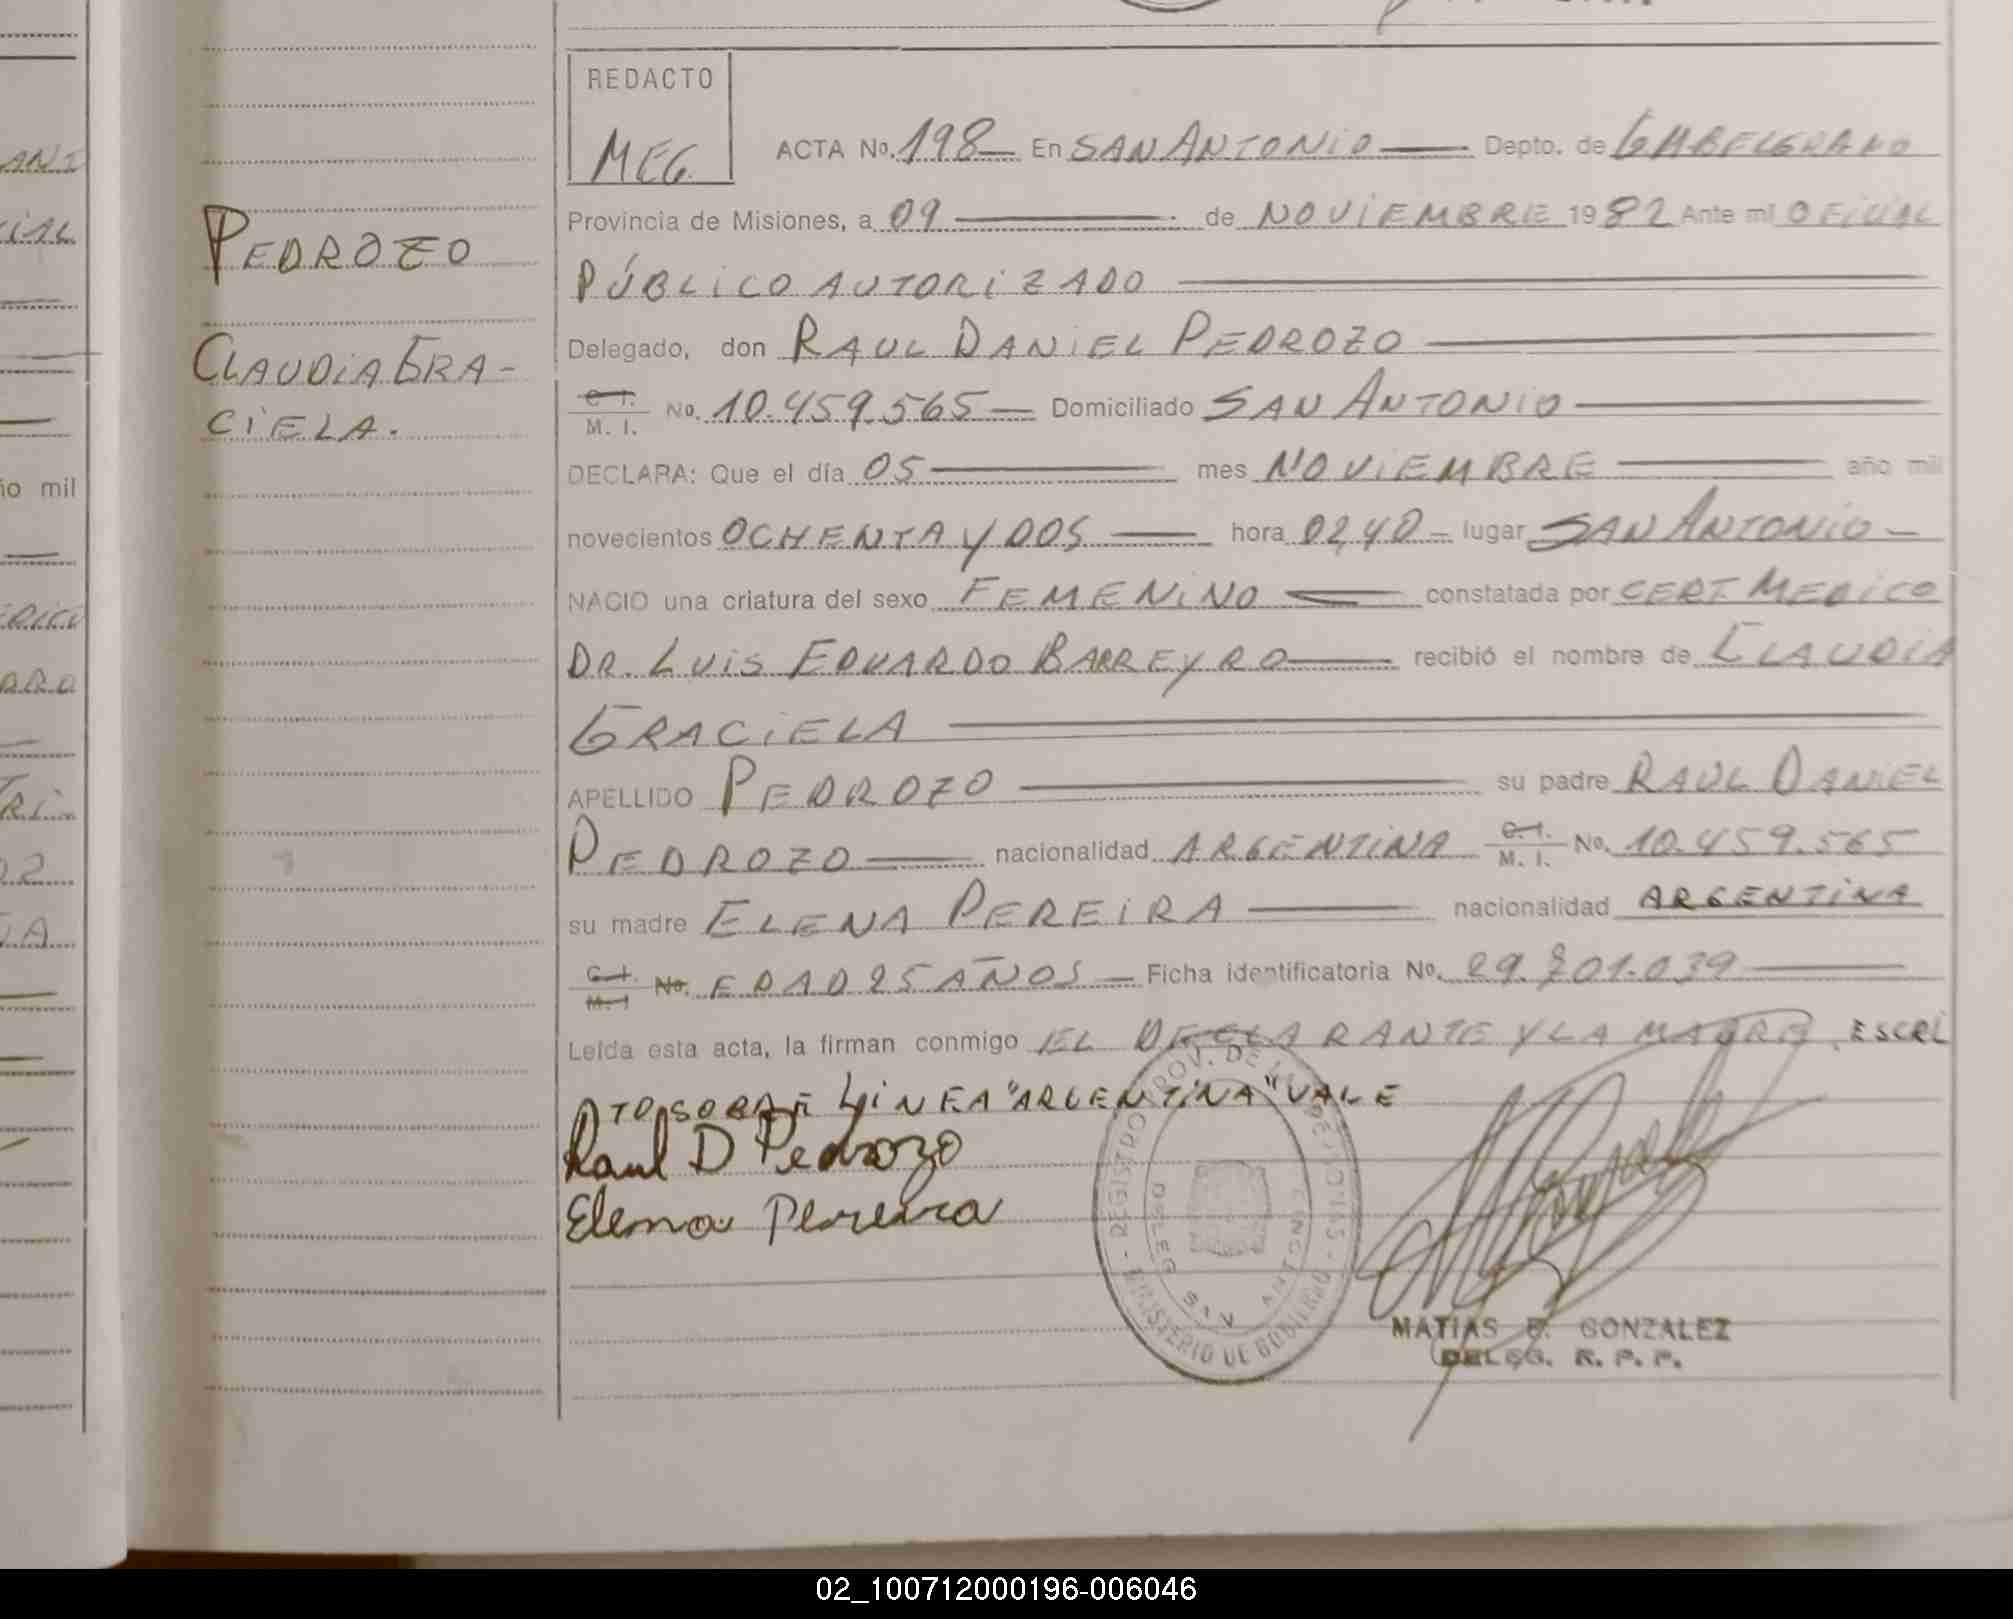 REDACTO
MEG.
ACTA No. 198 En SAN ANTONIO Depto. de GMBELGRANO
Provincia de Misiones, a 09 de NOVIEMBRE 1982 Ante mi OFICIAL
PÚBLICO AUTORIZADO
Delegado, don RAUL DANIEL PEDROZO
C. I.
M. I. No. 10.459.565 Domiciliado SAN ANTONIO
DECLARA: Que el día 05 mes NOVIEMBRE año mil
novecientos OCHENTA Y DOS hora 02,40 lugar SAN ANTONIO
NACIO una criatura del sexo FEMENINO constatada por CERT. MEDICO
DR. LUIS EDUARDO BARREYRO recibió el nombre de CLAUDIA
GRACIELA
APELLIDO PEDROZO su padre RAUL DANIEL
PEDROZO nacionalidad ARGENTINA C. I. M. I. No. 10.459.565
su madre ELENA PEREIRA nacionalidad ARGENTINA
C. I. M. I. No. EDAD 25 AÑOS Ficha identificatoria No. 29.701.039
Leída esta acta, la firman conmigo EL DECLARANTE Y LA MADRE. ESCRI
PTO SOBRE LINEA "ARGENTINA" VALE
Raul D Pedrozo
Elena Pereira
MATIAS E. GONZALEZ
DELEG. R. P. P.
PEDROZO
CLAUDIA GRA-
CIELA.
REGISTRO PROV. DE LAS PERSONAS - MINISTERIO DE GOBIERNO
DELEG SAN ANTONIO
ño mil
02_100712000196-006046